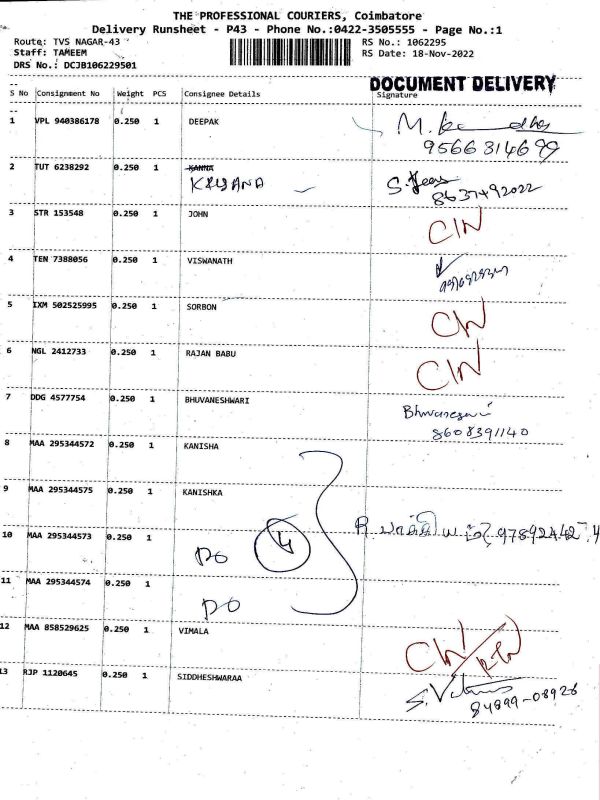 THE PROFESSIONAL COURIERS, Coimbatore
Delivery Runsheet - P43 - Phone No.:0422-3505555 - Page No.:1
Route: TVS NAGAR-43 RS No.: 1062295
Staff: TAMEEM RS Date: 18-Nov-2022
DRS No.: DCJB106229501
DOCUMENT DELIVERY
S No Consignment No Weight PCS Consignee Details Signature
1 VPL 940386178 0.250 1 DEEPAK M.
9566314699
2 TUT 6238292 0.250 1 KANNA
KRYANA S.
8637492022
3 STR 153548 0.250 1 JOHN CIN
4 TEN 7388056 0.250 1 VISWANATH
5 IXM 502525995 0.250 1 SORBON CIN
6 NGL 2412733 0.250 1 RAJAN BABU CIN
7 DDG 4577754 0.250 1 BHUVANESHWARI Bhuvaneswari
8608391140
8 MAA 295344572 0.250 1 KANISHA
9 MAA 295344575 0.250 1 KANISHKA
10 MAA 295344573 0.250 1 DO 4 R
11 MAA 295344574 0.250 1 DO
12 MAA 858529625 0.250 1 VIMALA CIN
13 RJP 1120645 0.250 1 SIDDHESHWARAA S.
84899-08926